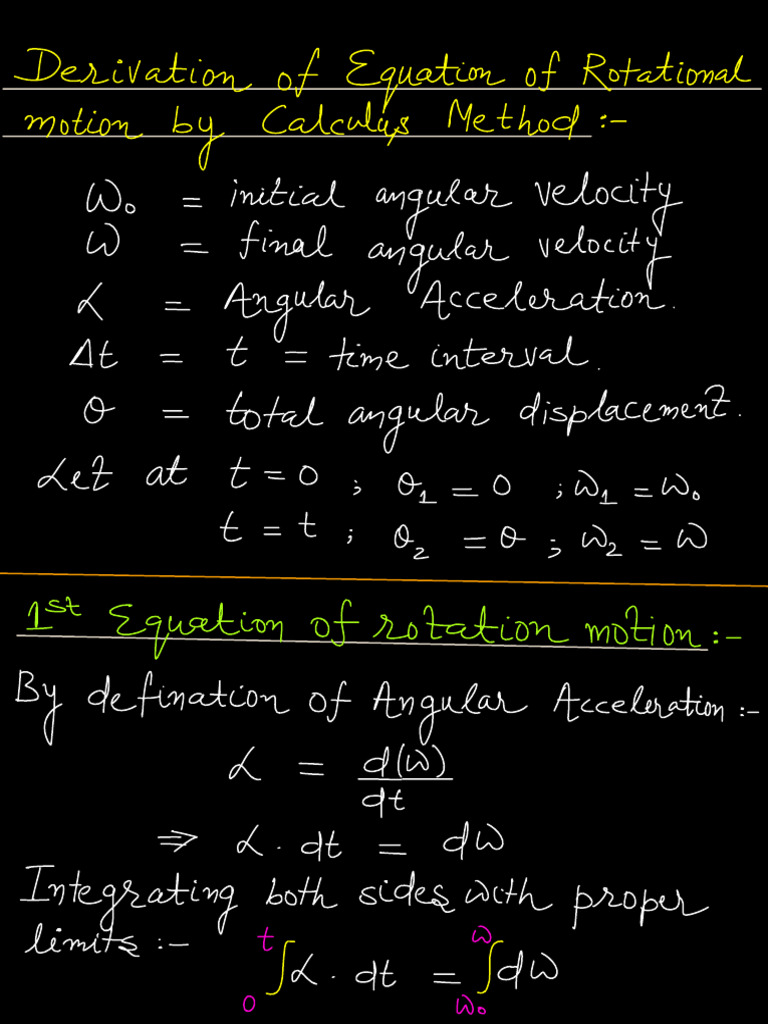 Derivation of Equation of Rotational
motion by Calculus Method :-
ω₀ = initial angular velocity
ω = final angular velocity
α = Angular Acceleration.
Δt = t = time interval.
θ = total angular displacement.
Let at t = 0 ; θ₁ = 0 ; ω₁ = ω₀
t = t ; θ₂ = θ ; ω₂ = ω
1st Equation of rotation motion :-
By defination of Angular Acceleration :-
α = d(ω)/dt
⇒ α · dt = dω
Integrating both sides with proper
limits :- ∫₀ᵗ α · dt = ∫_ω₀^ω dω